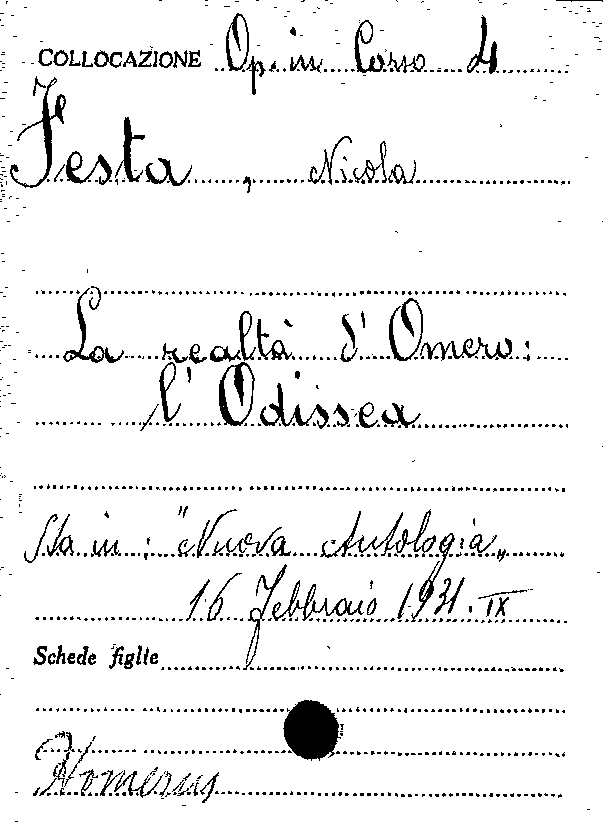 COLLOCAZIONE Op. in Corso 4
Festa, Nicola
La realtà d'Omero:
l'Odissea
Sta in: "Nuova Antologia„
16 Febbraio 1931. IX
Schede figlie
Homerus